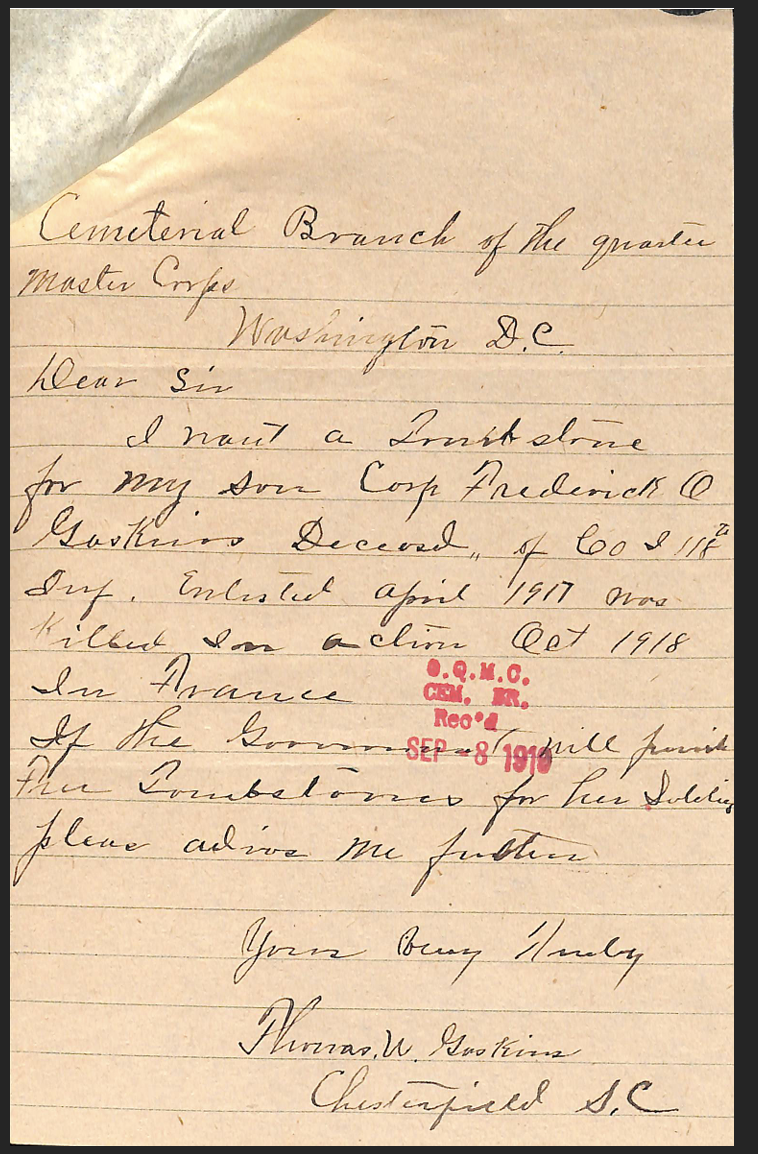 Cemeterial Branch of the quarter
master Corps
Washington D.C.
Dear Sir
I want a Tombstone
for my son Corp Frederick O
Gaskins Deceased, of Co I 118th
Inf. Enlisted april 1917 was
Killed In action Oct 1918
In France
O.Q.M.C.
CEM. BR.
Rec'd
SEP -8 1919
If the Government will furnish
Free Tombstones for her Soldiers
pleas advise me further
Yours Very Truly
Thomas. W. Gaskins
Chesterfield S.C